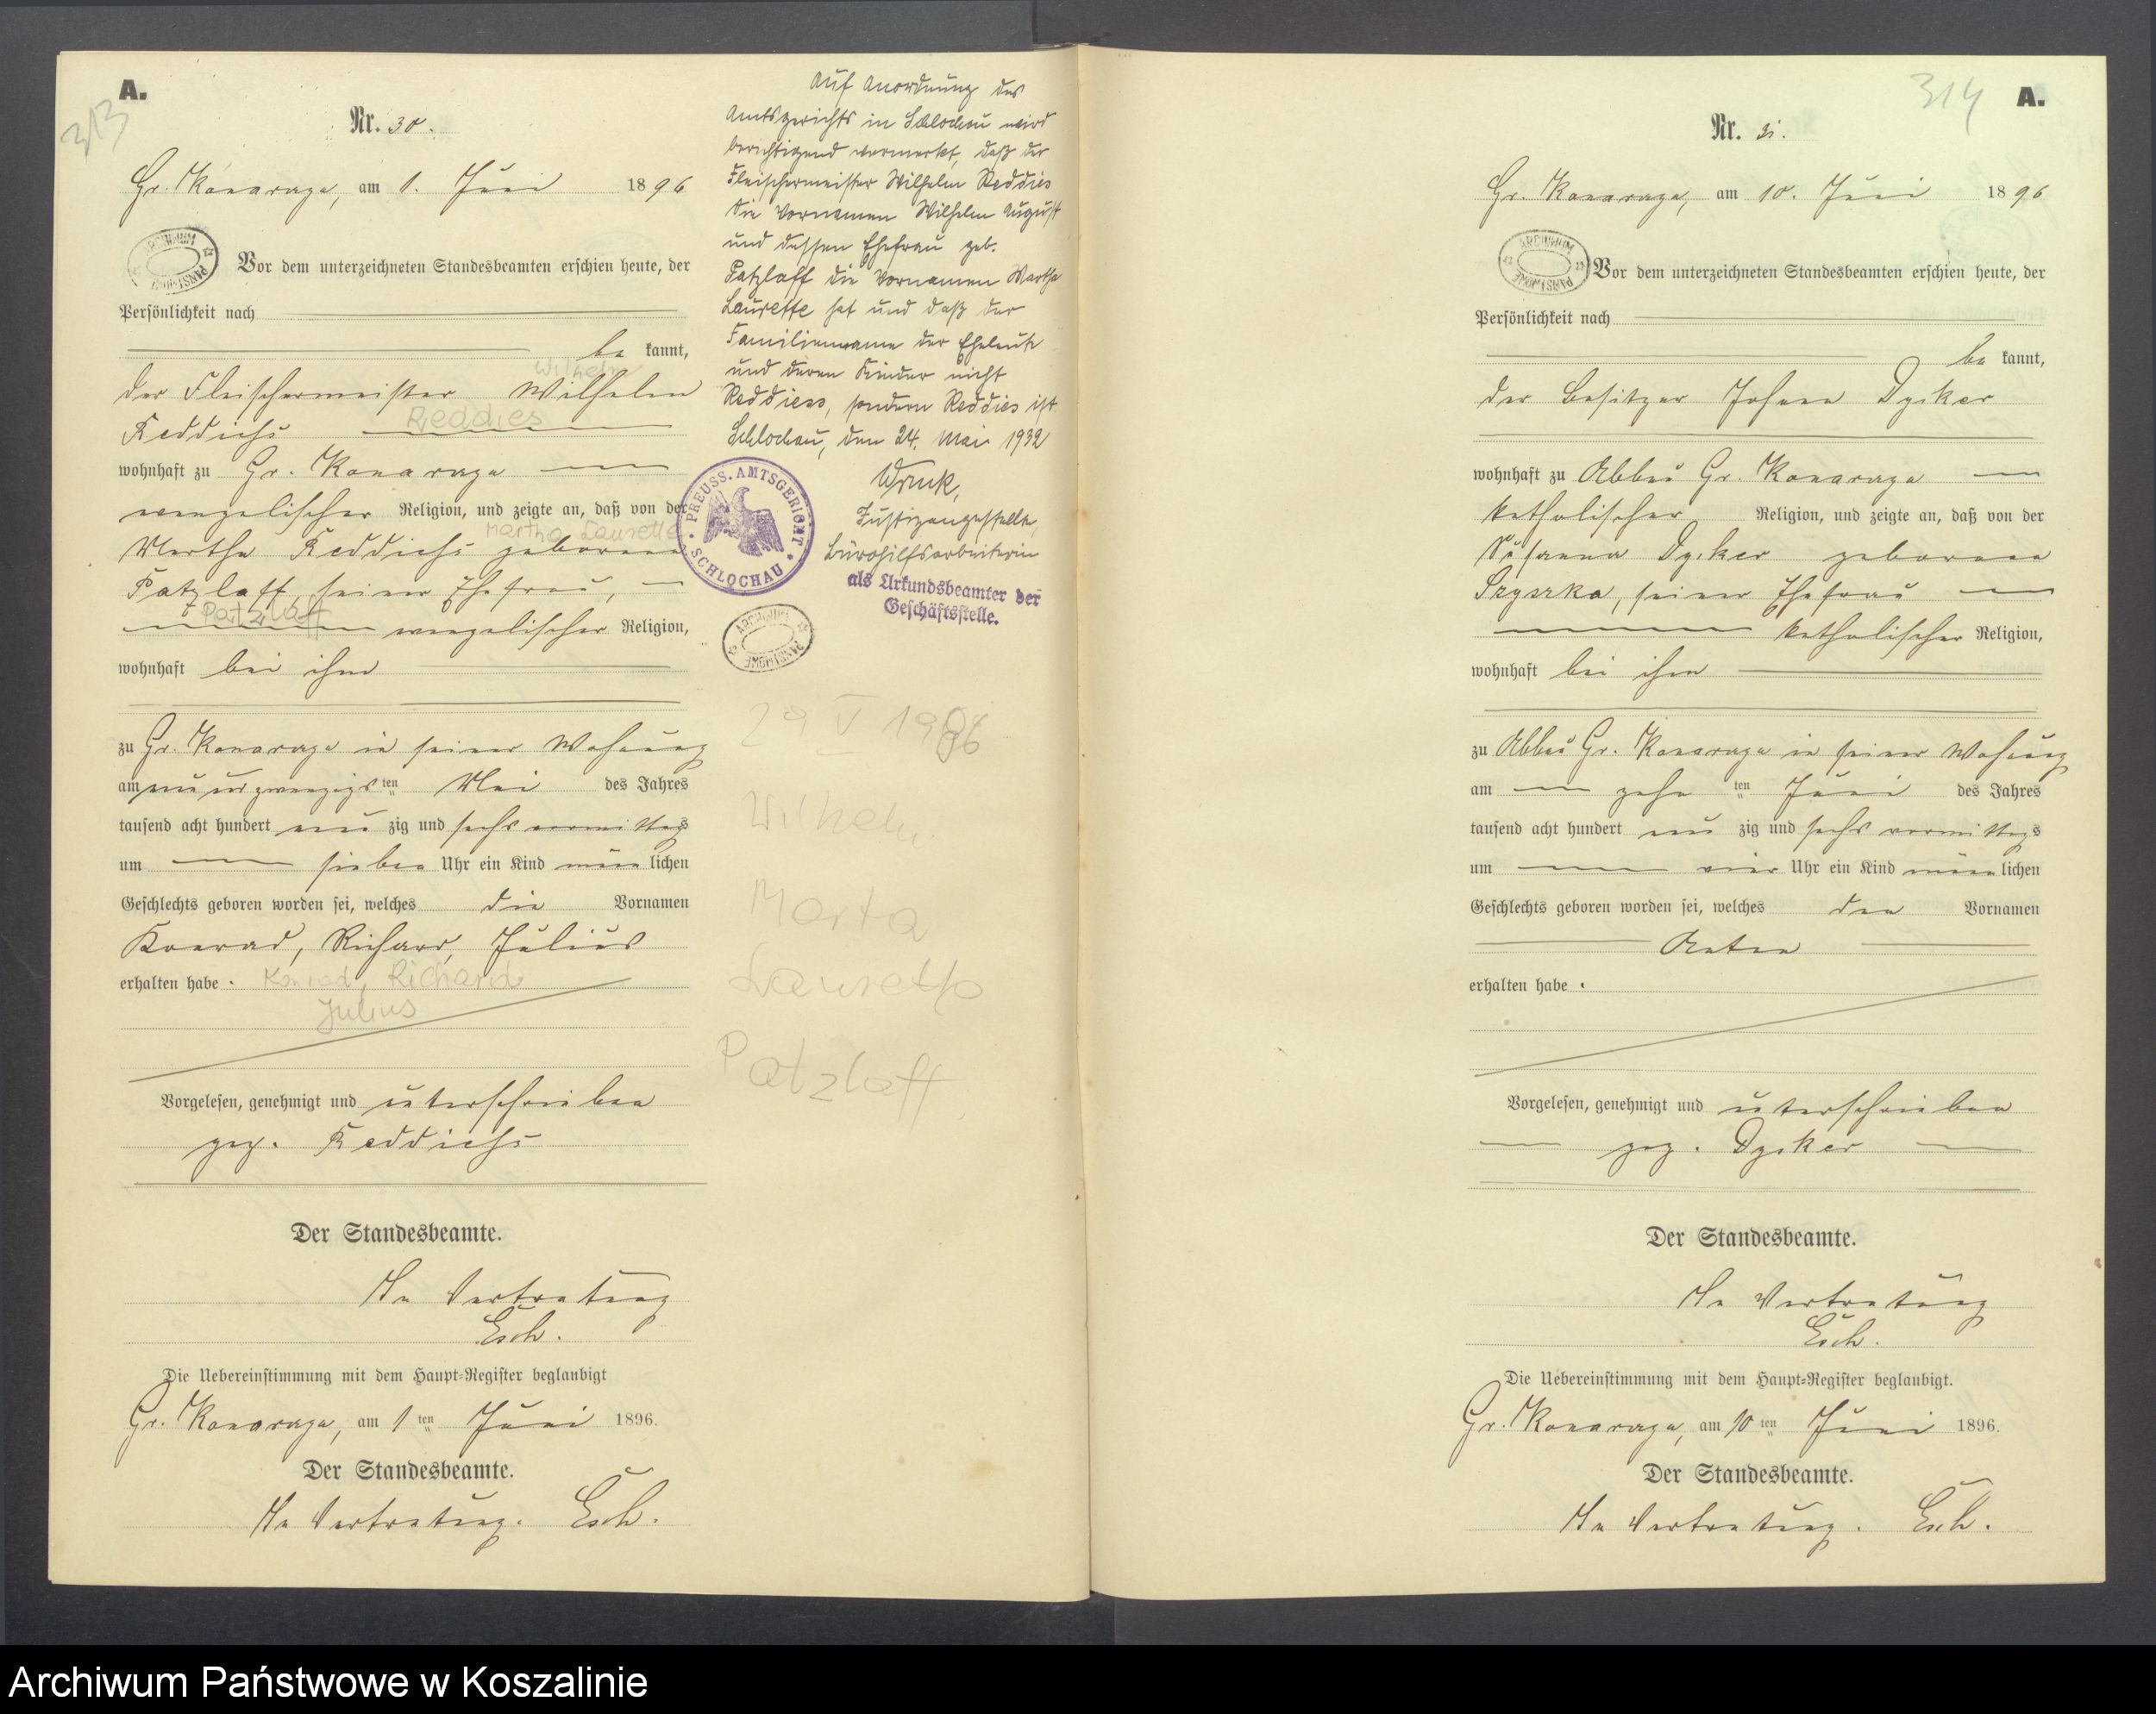 A.
313
Nr. 30.
Gr. Konarzyn, am 1. Juni 1896
ARCHIWUM PAŃSTWOWE
Vor dem unterzeichneten Standesbeamten erschien heute, der
Persönlichkeit nach
be kannt,
Wilhelm
der Fleischermeister Wilhelm
Reddichs Reddies
wohnhaft zu Gr. Konarzyn
evangelischer Religion, und zeigte an, daß von der
Martha Laurette
Martha Reddichs geborene
Patzlaff, seiner Ehefrau,
Patzlaff
evangelischer Religion,
wohnhaft bei ihm
zu Gr. Konarzyn in seiner Wohnung
am neunundzwanzigsten Mai des Jahres
tausend acht hundert neun zig und sechs vormittags
um sieben Uhr ein Kind männ lichen
Geschlechts geboren worden sei, welches die Vornamen
Konrad, Richard, Julius
erhalten habe. Konrad, Richard
Julius
Vorgelesen, genehmigt und unterschrieben
gez. Reddichs
Der Standesbeamte.
In Vertretung
Esch.
Die Uebereinstimmung mit dem Haupt-Register beglaubigt
Gr. Konarzyn, am 1 ten Juni 1896.
Der Standesbeamte.
In Vertretung. Esch.
Auf Anordnung des
Amtsgerichts in Schlochau wird
berichtigend vermerkt, daß der
Fleischermeister Wilhelm Reddies
die Vornamen Wilhelm August
und dessen Ehefrau geb.
Patzlaff die Vornamen Martha
Laurette hat und daß der
Familienname der Eheleute
und deren Kinder nicht
Reddiess, sondern Reddies ist
Schlochau, den 24. Mai 1932
Justizangestellte,
Bürohilfsarbeiterin
als Urkundsbeamter der
Geschäftsstelle.
PREUSS. AMTSGERICHT SCHLOCHAU
ARCHIWUM PAŃSTWOWE
29 V 1986
Wilhelm
Marta
Laurette
Patzlaff
314
A.
Nr. 31.
Gr. Konarzyn, am 10. Juni 1896
ARCHIWUM PAŃSTWOWE
Vor dem unterzeichneten Standesbeamten erschien heute, der
Persönlichkeit nach
be kannt,
der Besitzer Johann Dyiker
wohnhaft zu Abbau Gr. Konarzyn
katholischer Religion, und zeigte an, daß von der
Susanna Dyiker geborene
Szyszka, seiner Ehefrau
katholischer Religion,
wohnhaft bei ihm
zu Abbau Gr. Konarzyn in seiner Wohnung
am zehn ten Juni des Jahres
tausend acht hundert neun zig und sechs vormittags
um vier Uhr ein Kind männ lichen
Geschlechts geboren worden sei, welches den Vornamen
Anton
erhalten habe.
Vorgelesen, genehmigt und unterschrieben
gez. Dyiker
Der Standesbeamte.
In Vertretung
Esch.
Die Uebereinstimmung mit dem Haupt-Register beglaubigt.
Gr. Konarzyn, am 10 ten Juni 1896.
Der Standesbeamte.
In Vertretung. Esch.
Archiwum Państwowe w Koszalinie